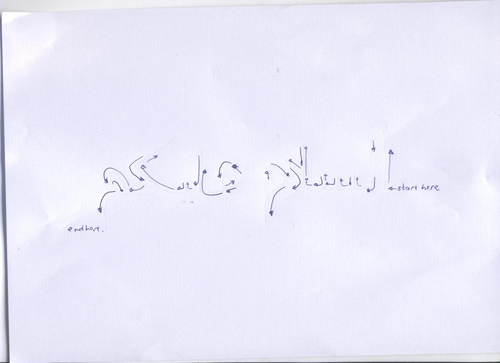 السلام عليكم
start here
end here.